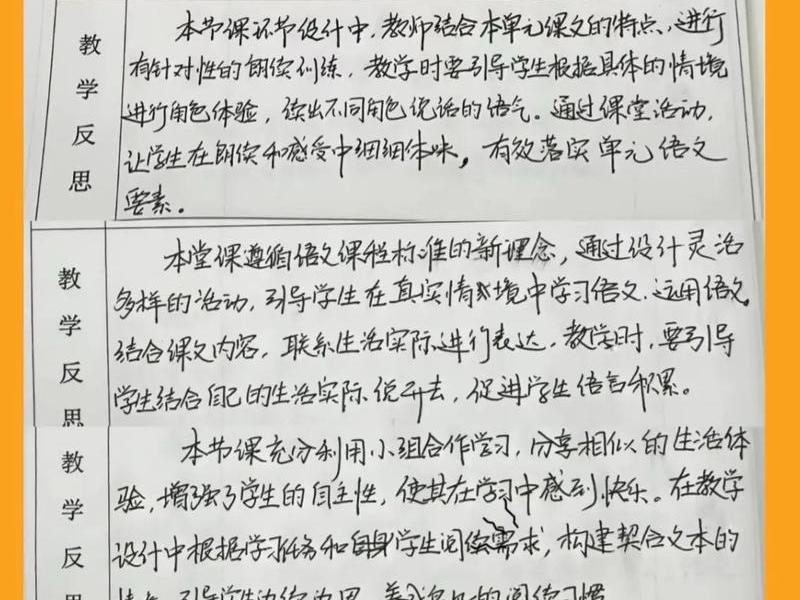 教学反思
本节课环节设计中,教师结合本单元课文的特点,进行
有针对性的朗读训练,教学时要引导学生根据具体的情境
进行角色体验,读出不同角色说话的语气。通过课堂活动,
让学生在朗读和感受中细细体味,有效落实单元语文
要素。
教学反思
本堂课遵循语文课程标准的新理念,通过设计灵活
多样的活动,引导学生在真实情境中学习语文、运用语文。
结合课文内容,联系生活实际进行表达,教学时,要引导
学生结合自己的生活实际说开去,促进学生语言积累。
教学反思
本节课充分利用小组合作学习,分享相似的生活体
验,增强了学生的自主性,使其在学习中感到快乐。在教学
设计中根据学习任务和自身学生阅读需求,构建契合文本的
引导学生边读边思,养成良好的阅读习惯